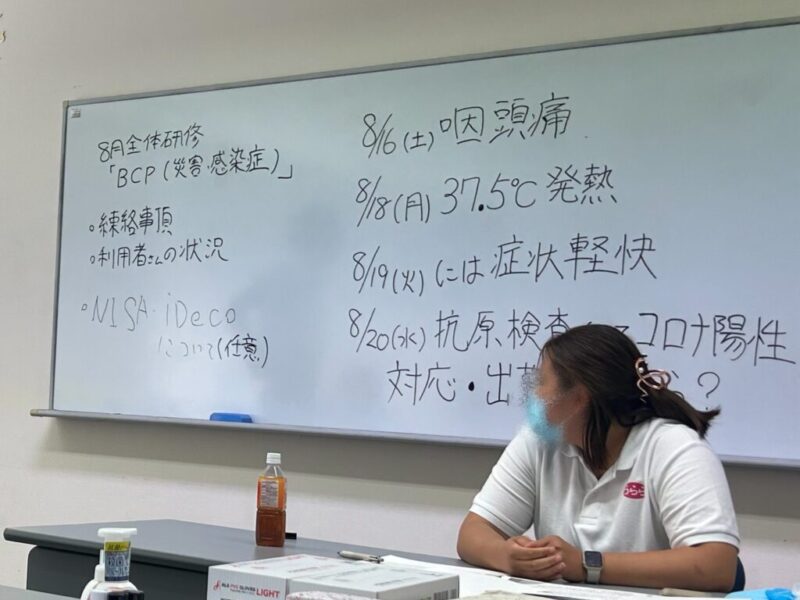 8月全体研修
「BCP(災害・感染症)」
。練絡事頂
。利用者さんの状況
。NISA・iDeco
について(任意)
8/16(土)咽頭痛
8/18(月)37.5℃発熱
8/19(火)には症状軽快
8/20(水)抗原検査 コロナ陽性
対応・出 ?
うらら
LIGHT